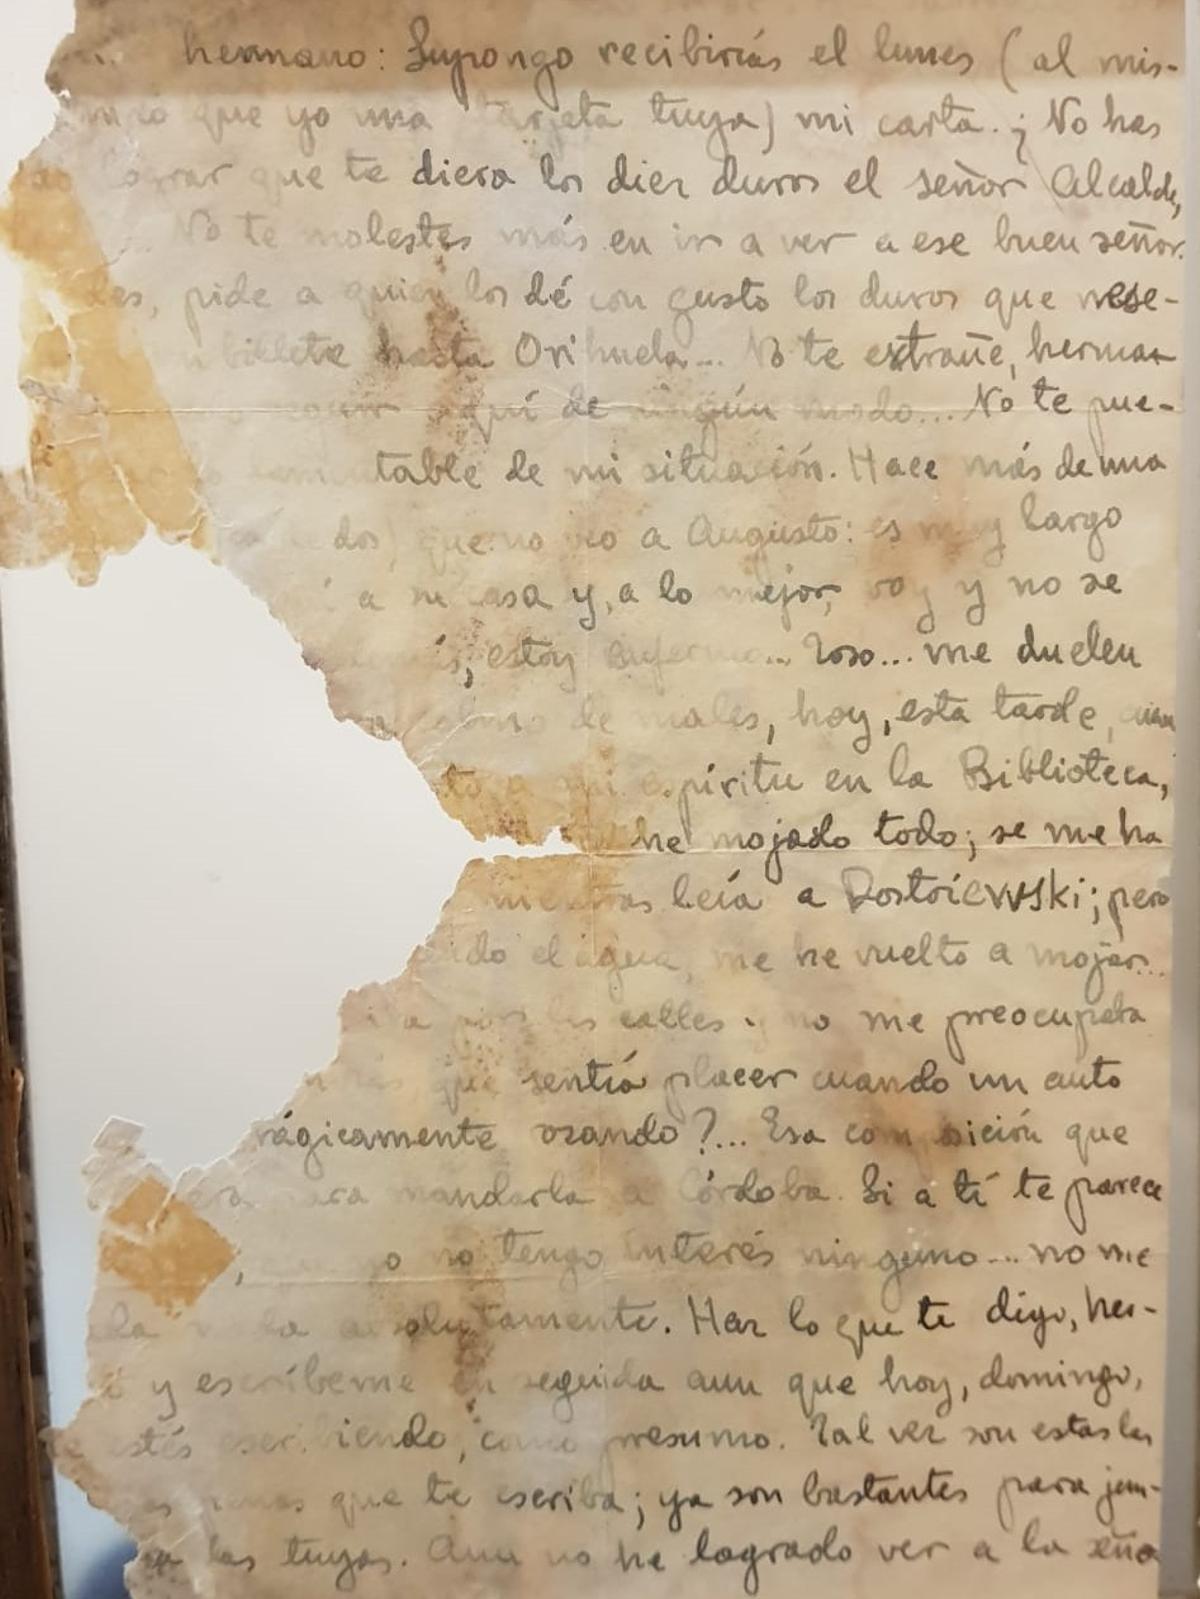 hermano: Supongo recibirás el lunes (al mis-
que yo una tarjeta tuya) mi carta. ¿No has
lograr que te diera los diez duros el señor Alcalde,
No te molestes más en ir a ver a ese buen señor.
des, pide a quien los dé con gusto los duros que nese-
billete hasta Orihuela... No te extrañe, herma-
seguir aquí de ningún modo... No te pue-
lamentable de mi situación. Hace más de una
de dos) que no veo a Augusto: es muy largo
a su casa y, a lo mejor, voy y no se
estoy enfermo... Toso... me duelen
colmo de males, hoy, esta tarde,
a mi espíritu en la Biblioteca,
he mojado todo; se me ha
mientras leía a Dostoiewski; pero
el agua, me he vuelto a mojar...
por las calles y no me preocupaba
más que sentía placer cuando un auto
rágicamente rozando?... Esa composición que
era para mandarla a Córdoba. Si a tí te parece
, o no tengo interés ninguno... no me
la absolutamente. Haz lo que te digo, her-
y escríbeme en seguida aun que hoy, domingo,
estés escribiendo, como presumo. Tal vez son estas las
que te escriba; ya son bastantes para jun-
las tuyas. Aun no he logrado ver a la